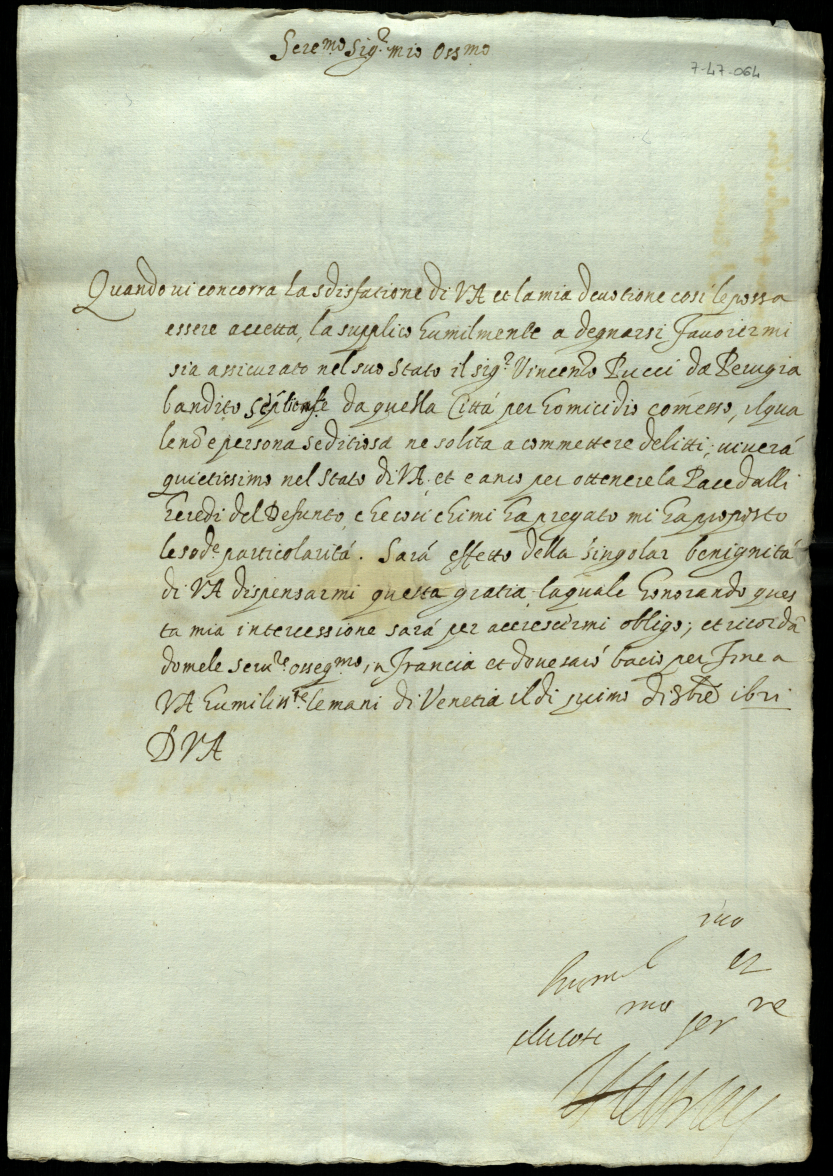 Ser.mo Sig.r mio Oss.mo
7-47-064
Quando vi concorra la sodisfatione di VA et la mia devotione cosi le possa
essere accetta, la supplico humilmente a degnarsi favorirmi
sia assicurato nel suo Stato il sig.r Vincenzo Pucci da Perugia
bandito da quella Città per homicidio comesso, il qua
le nō e persona seditiosa ne solita a commettere delitti; viverà
quietissimo nel Stato di VA. et e anco per ottenere la Pace dalli
heredi del Defunto, che cosi chi mi ha pregato mi ha proposto
le sod.e particolarità. Sarà effetto della singolar benignità
di VA dispensarmi questa gratia laquale honorando ques
ta mia intercessione sarà per accrescermi obligo; et ricordā
domele ser.re osseq.mo in Francia et dove sarò bacio per fine a
VA humiliss.te le mani di Venetia il di primo di 8bre
D VA
humil mo et
devoti mo ser re